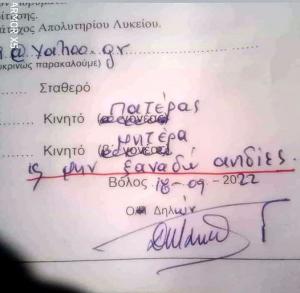 τος Απολυτηρίου Λυκείου.
@yahoo.gr
κρινώς παρακαλούμε)
Σταθερό
Πατέρας
Κινητό
μητέρα
Κινητό
ις μην ξαναδώ αηδίες.
Βόλος, 18-09-2022
Ο Δηλών